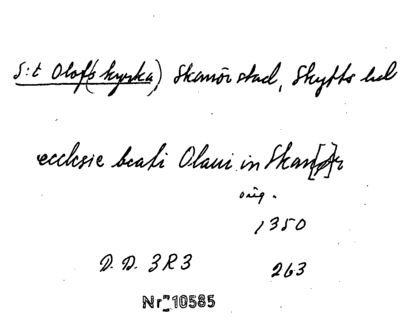 S:t Olofs(kyrka) Skanör stad, Skytts hd
ecclesie beati Olaui in Skan[ø]r
orig.
1350
D. D. 3R3 263
Nr 10585